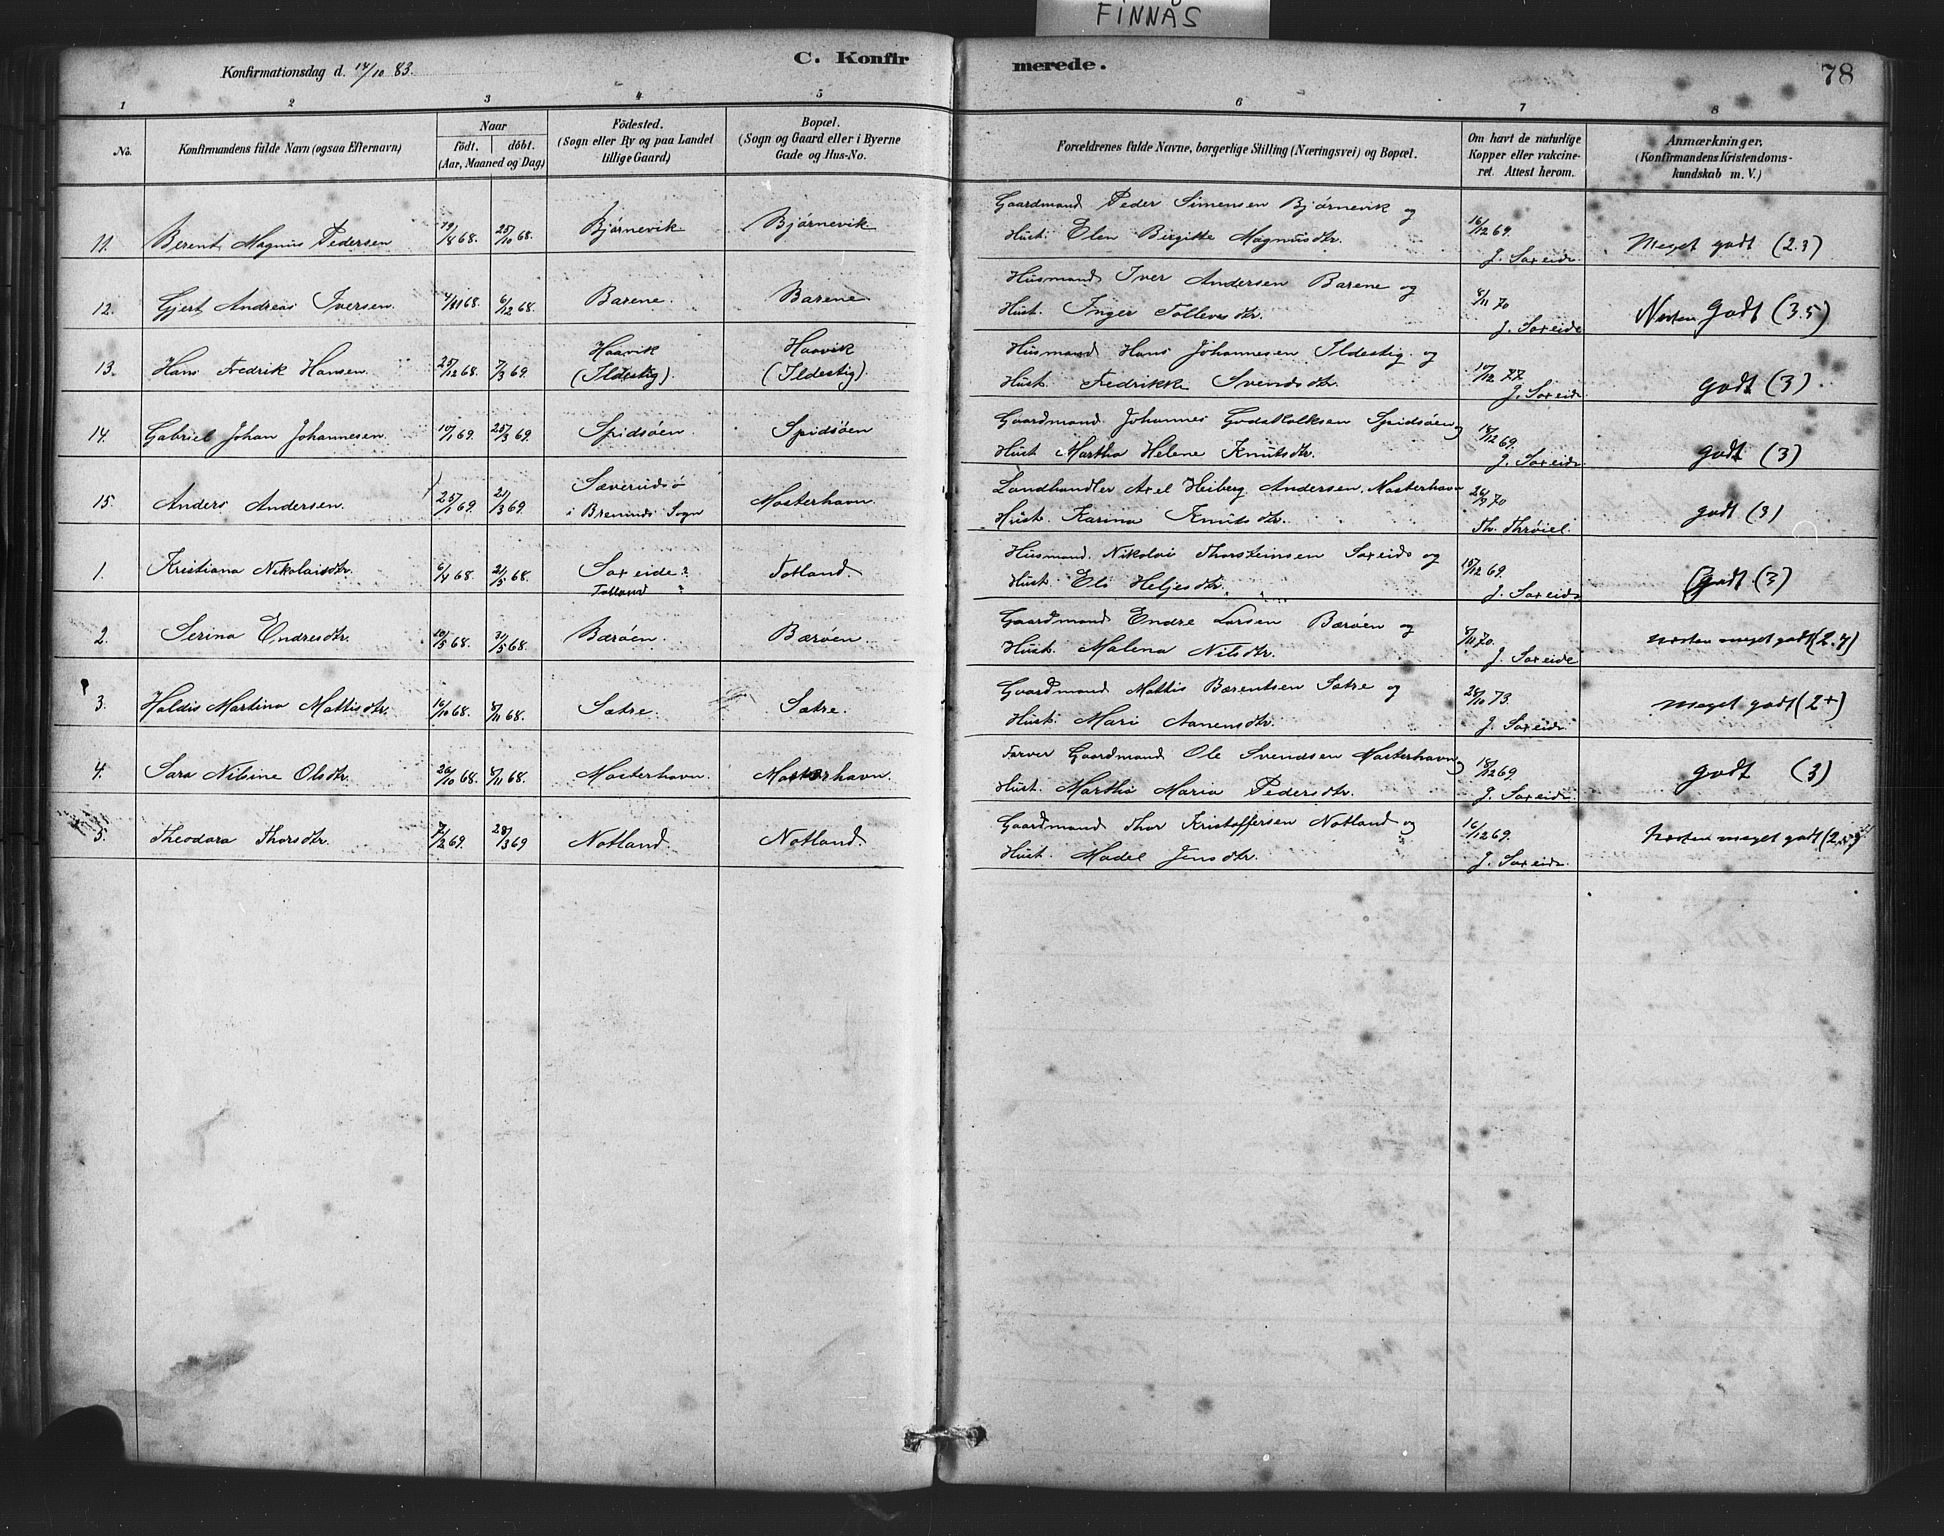 FINNÅS
Konfirmationsdag d. 14/10 83.
C. Konfir
merede.
78
1 2 3 4 5 6 7 8
No.
Konfirmandens fulde Navn (ogsaa Efternavn)
Naar
födt. döbt.
(Aar, Maaned og Dag)
Födested.
(Sogn eller By og paa Landet
tillige Gaard)
Bopæl.
(Sogn og Gaard eller i Byerne
Gade og Hus-No.
Forældrenes fulde Navne, borgerlige Stilling (Næringsvei) og Bopæl.
Om havt de naturlige
Kopper eller vakcine-
ret. Attest herom.
Anmærkninger.
(Konfirmandens Kristendoms-
kundskab m. V.)
11. Berent Magnus Pedersen 19/8 68. 25/10 68. Bjørnevik Bjørnevik
Gaardmand Peder Simensen Bjørnevik og
Hust. Elen Birgitte Magnusdtr.
16/12 69.
J. Sørseide
Meget godt (2.3)
12. Gjert Andreas Iversen. /11 68. 6/12 68. Barene. Barene
Husmand Iver Andersen Barene og
Hust. Inger Tollevsdtr.
8/11 70
Næsten Godt (3.5)
13. Hans Fredrik Hansen. 25/12 68. 7/3 69. Haavik Haavik
(Ildestig). (Ildestig).
Husmand Hans Johannesen Ildestig. og
Hust. Fredrikke Svendsdtr.
19/12 77
godt (3)
14. Gabriel Johan Johannesen. 10/1 69. 25/3 69. Spidsøen. Spidsøen
Gaardmand Johannes Godskalksen Spidsøen og
Hust. Martha Helene Knutsdtr.
18/12 69.
godt (3)
15. Anders Andersen. 25/1 69. 21/3 69. Sæverudsø Mosterhavn.
i Bremnæs Sogn
Landhandler Axel Heiberg Andersen, Mosterhavn
Hust. Karina Knutsdtr.
26/9 70
godt (3)
1. Kristiana Nikolaisdtr. 6/4 68. 21/5 68. Totland.
Totland
Husmand. Nikolai Thorsteinsen og
Hust. Eli Heljesdtr.
18/12 69.
Godt (3)
2. Serina Endresdtr. 20/5 68. 31/5 68. Bærøen. Bærøen.
Gaardmand Endre Larsen Bærøen og
Hust. Malena Nilsdtr.
8/11 70.
næsten meget godt (2.4)
3. Haldis Martina Mattisdtr. 16/10 68. 8/11 68. Sætre. Sætre.
Gaardmand Mattis Bærentsen Sætre og
Hust. Mari Aanensdtr.
28/10 73.
meget godt (2+)
4. Sara Nilsine Olsdtr. 20/10 68. 8/11 68. Mosterhavn. Mosterhavn.
Farver Gaardmand Ole Svendsen Mosterhavn og
Hust. Martha Maria Pedersdtr.
18/12 69.
godt (3)
5. Theodora Thorsdtr. /2 69. 28/3 69 Notland. Notland.
Gaardmand Thor Kristoffersen Notland og
Hust. Madel Jensdtr.
16/12 69.
næsten meget godt